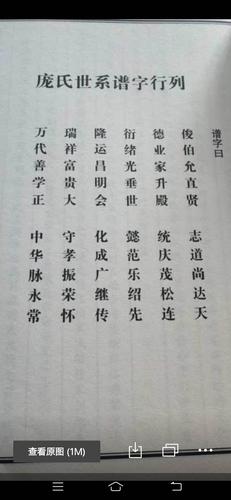 庞氏世系谱字行列
谱字曰
俊伯允直贤 志道尚达天
德业家升殿 统庆茂松连
衍绪光垂世 懿范乐绍先
隆运昌明会 化成广继传
瑞祥富贵大 守孝振荣怀
万代善学正 中华脉永常
查看原图 (1M)